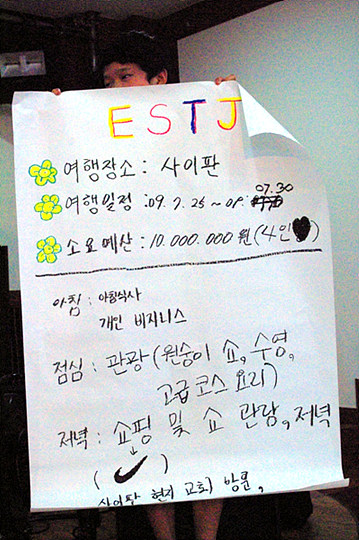 ESTJ
여행장소: 사이판
07.30
여행일정: 09.7.25~
소요예산: 10.000.000원(4인
아침: 아침식사
개인 비지니스
점심: 관광(원숭이 쇼, 수영,
고급 코스 요리)
저녁: 쇼핑 및 쇼 관람, 저녁
( )
사이판 현지 교회 방문,